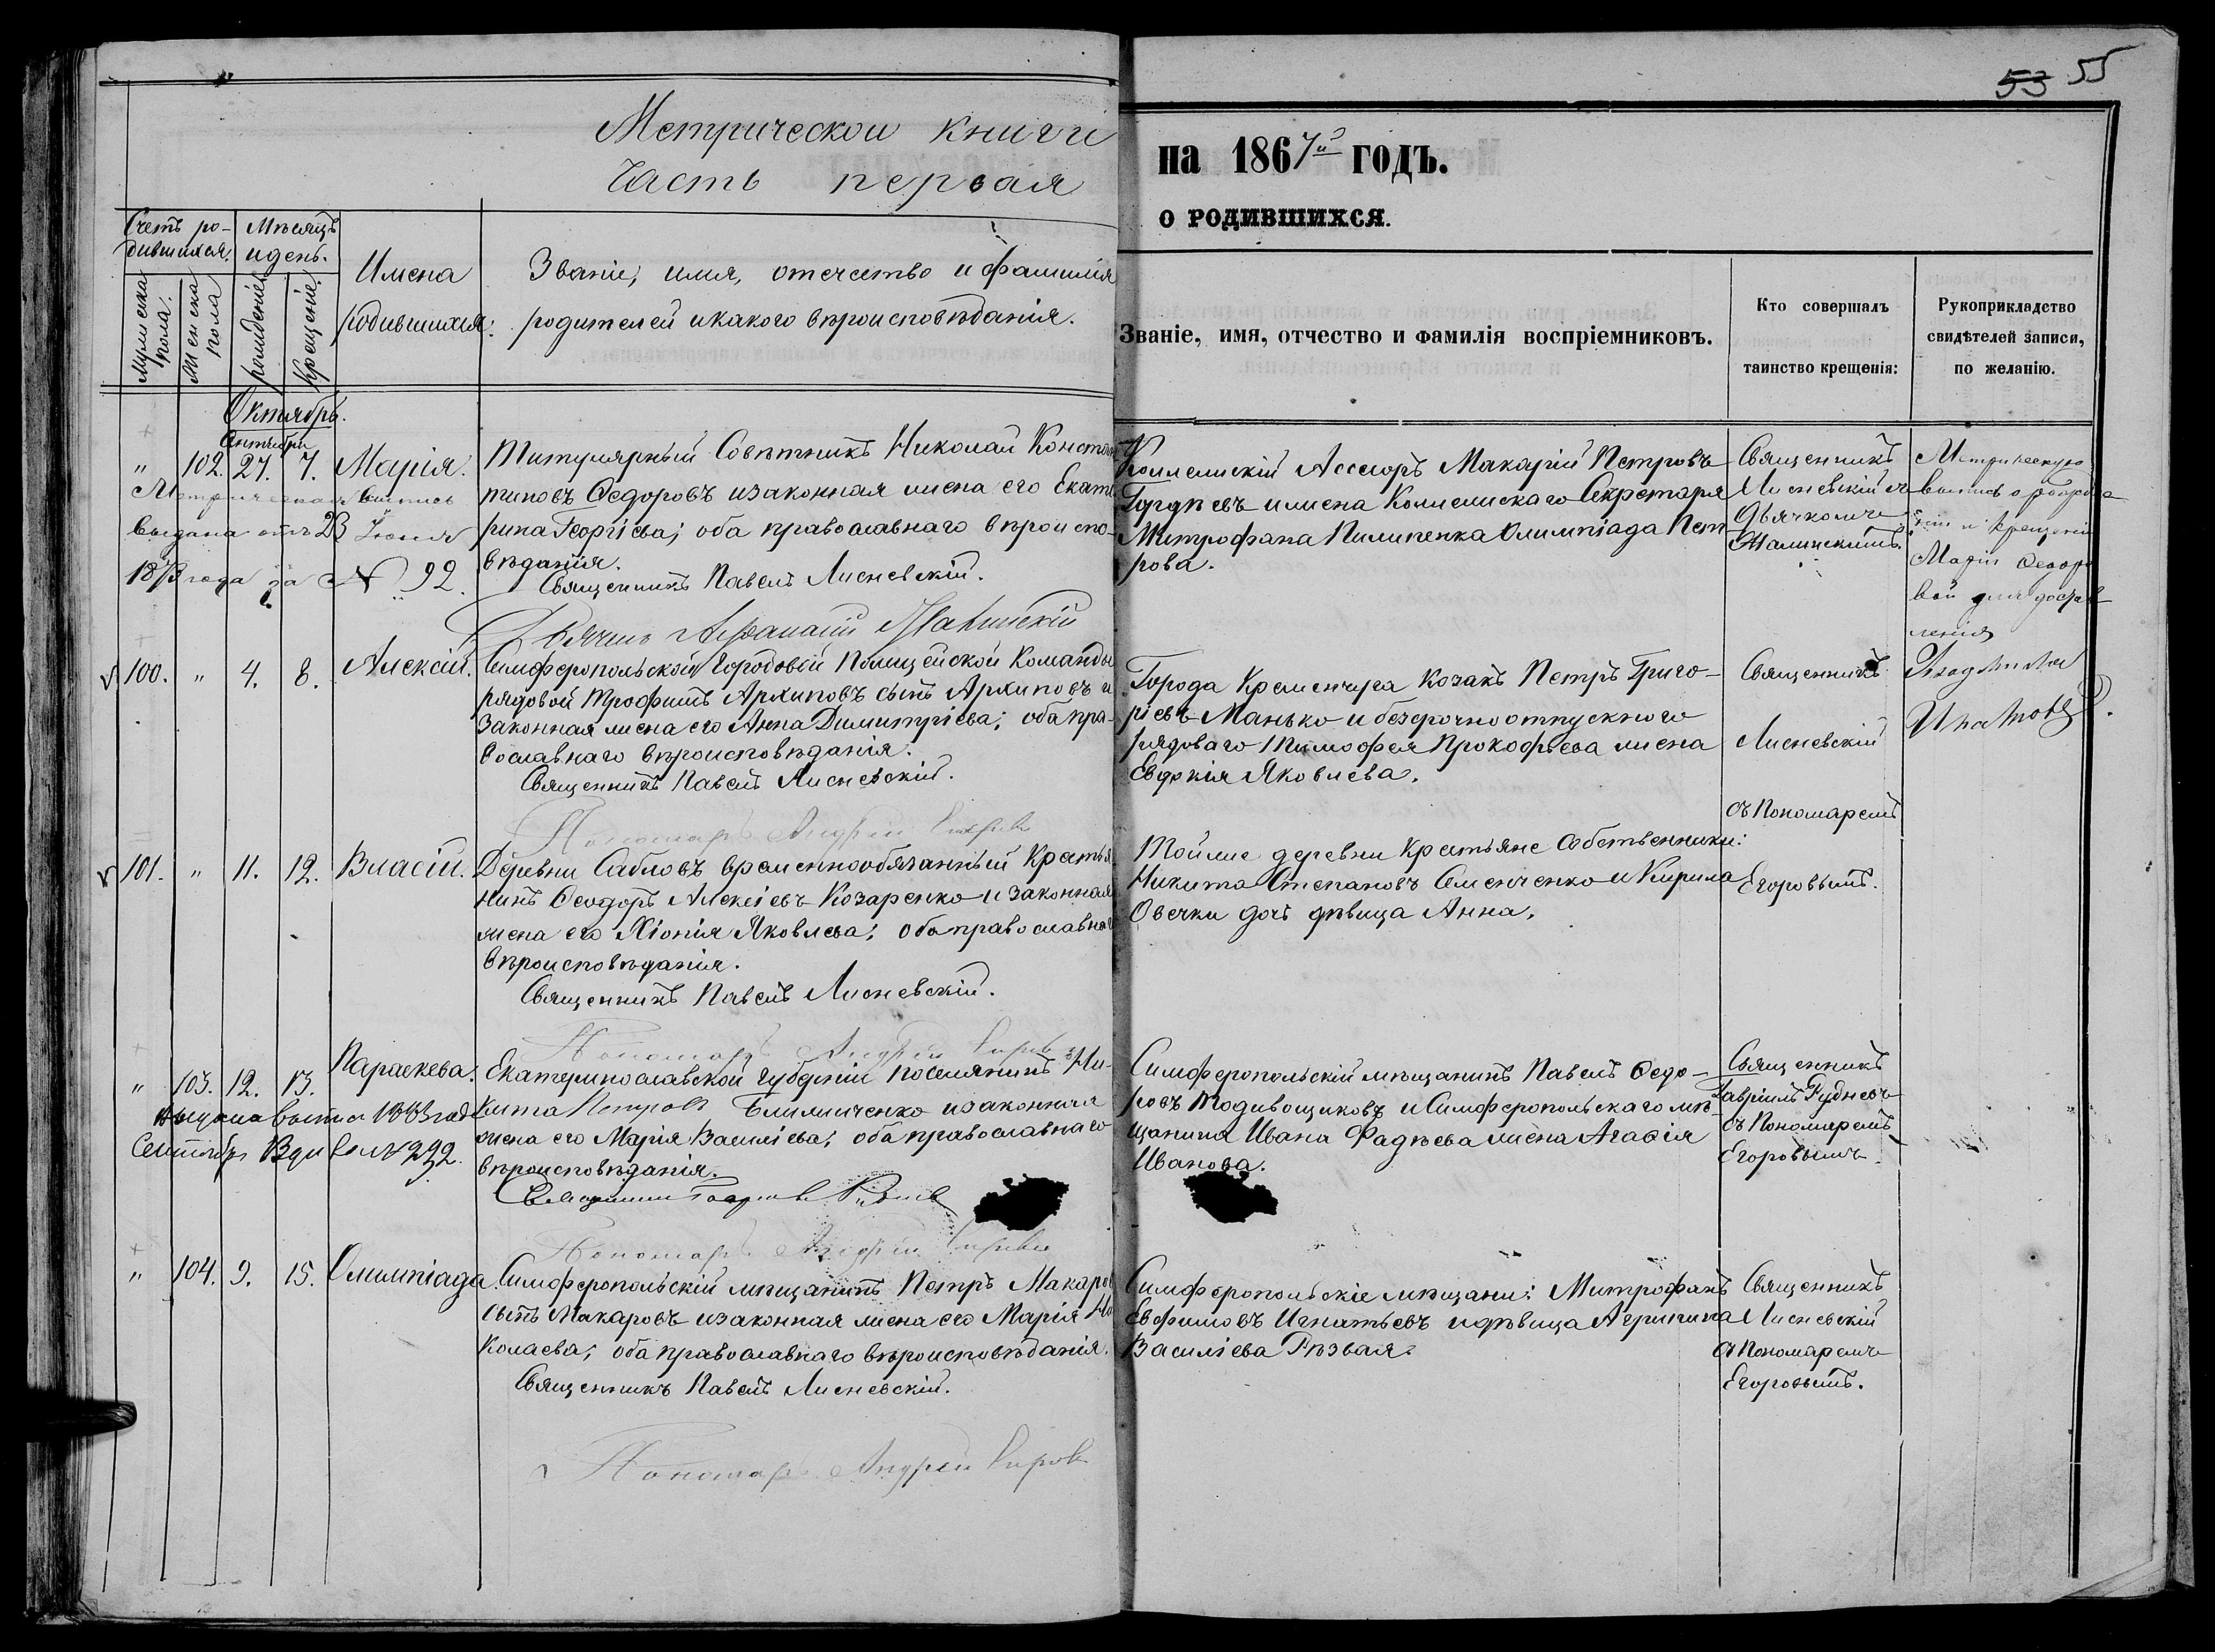 53 55
Метрической книги
Часть первая
на 1867й годъ.
о родившихся.
Счетъ ро-
дившихся.
Мѣсяцъ
и день.
Мужеска
пола.
Женска
пола
рожденіе
крещеніе.
Имена
родившихся.
Званіе, имя, отечество и фамилія
родителей и какого вѣроисповѣданія.
Званіе, имя, отчество и фамилія воспріемниковъ.
Кто совершалъ
таинство крещенія:
Рукоприкладство
свидѣтелей записи,
по желанію.
Октябрь.
" 102. 27. 7. Марія.
Метрическая выпись
выдана отъ 23 Іюня
1873 года за № 92.
Титулярный Совѣтникъ Николай Констан
тиновъ Ѳедоровъ и законная жена его Екате
рина Георгіева; оба православнаго вѣроиспо-
вѣданія.
Священникъ Павелъ Лисневскій.
Дьячекъ Аѳанасій
Коллежскій Ассесоръ Макарій Петровъ
Гордѣевъ и жена Коллежскаго Секретаря
Митрофана Пилипенка Олимпіада Пет
рова.
Священникъ
Лисневскій съ
Дьячкомъ
Метрическую
выпись о рожде
ніи и крещеніи
Маріи Ѳедоро
вой для достав
ленія
100. " 4. 8. Алексій.
Симферопольской Городовой Полицейской Команды
рядовой Трофимъ Архиповъ сынъ Архиповъ и
законная жена его Анна Димитріева; оба пра-
вославнаго вѣроисповѣданія.
Священникъ Павелъ Лисневскій.
Пономарь Андрей
Города Кременчуга Козакъ Петръ Григо-
ріевъ Манько и безсрочноотпускного
рядоваго Тимофея Прокофьева жена
Евдокія Яковлева.
Священникъ
Лисневскій
съ Пономаремъ
Егоровымъ.
101. " 11. 12. Власій.
Деревни Сабловъ временнообязанный Крестья
нинъ Ѳеодоръ Алексіевъ Козаренко и законная
жена его Хіонія Яковлева; оба православнаго
вѣроисповѣданія.
Священникъ Павелъ Лисневскій.
Пономарь Андрей
Тойже деревни Крестьяне Собственники:
Никита Степановъ Семенченко и Кирила
Овечки дочь дѣвица Анна.
" 103. 12. 13. Параскева.
Выдана выпись 1883 года
Сентября 3 дня № 292.
Екатеринославской губерніи поселянинъ Ни-
кита Петровъ Блимниченко и законная
жена его Марія Василіева; оба православнаго
вѣроисповѣданія.
Священникъ Гавріилъ Рудневъ
Пономарь Андрей
Симферопольскій мѣщанинъ Павелъ Ѳедо-
ровъ Подивощиковъ и Симферопольскаго мѣ-
щанина Ивана Фадѣева жена Агафія
Иванова.
Священникъ
Гавріилъ Рудневъ
съ Пономаремъ
Егоровымъ.
" 104. 9. 15. Олимпіада.
Симферопольскій мѣщанинъ Петръ Макаровъ
сынъ Макаровъ и законная жена его Марія Ни
колаева; оба православнаго вѣроисповѣданія.
Священникъ Павелъ Лисневскій.
Пономарь Андрей
Симферопольскіе мѣщани: Митрофанъ
Евфимовъ Игнатьевъ и дѣвица Агрипина
Василіева Рѣзвая.
Священникъ
Лисневскій
съ Пономаремъ
Егоровымъ.